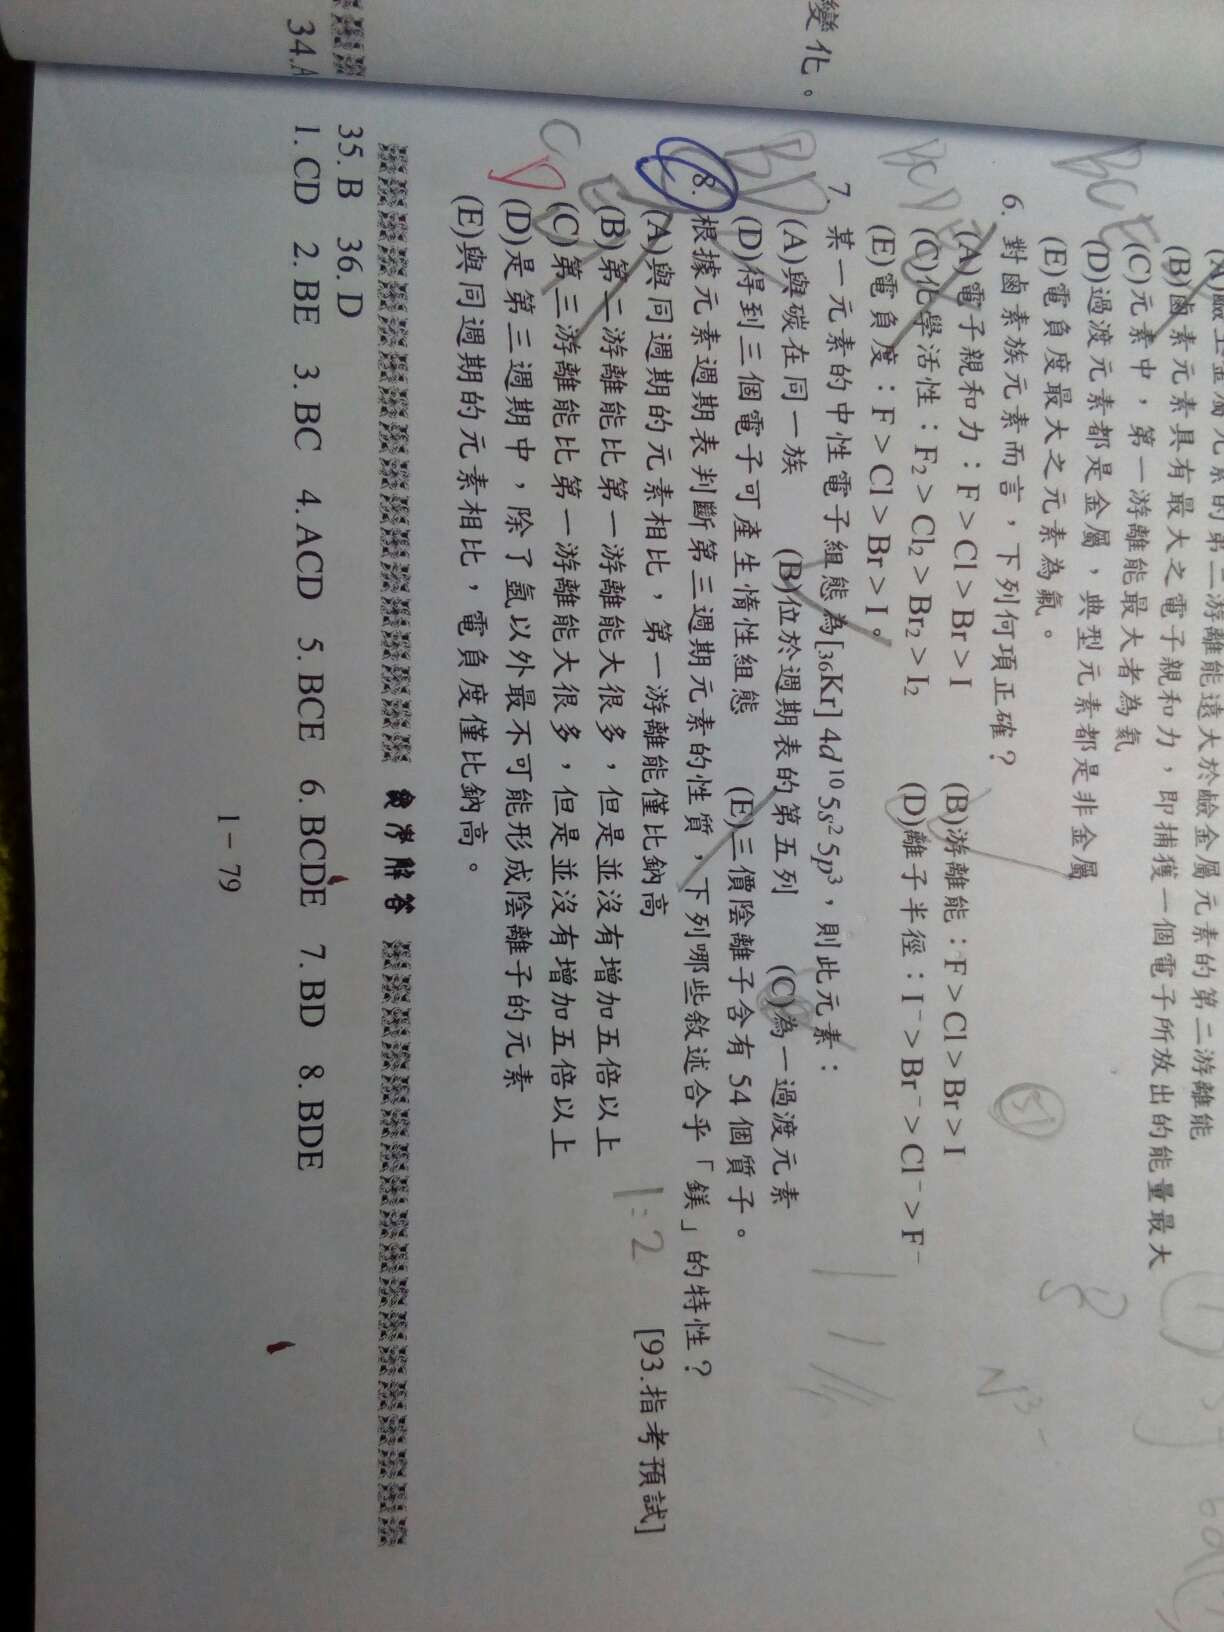 變化。
(B)鹵素元素具有最大之電子親和力，即捕獲一個電子所放出的能量最大
(C)元素中，第一游離能最大者為氦
(D)過渡元素都是金屬，典型元素都是非金屬
(E)電負度最大之元素為氟。
6. 對鹵素族元素而言，下列何項正確？
(A)電子親和力：F＞Cl＞Br＞I (B)游離能：F＞Cl＞Br＞I
(C)化學活性：F₂＞Cl₂＞Br₂＞I₂ (D)離子半徑：I⁻＞Br⁻＞Cl⁻＞F⁻
(E)電負度：F＞Cl＞Br＞I。
7. 某一元素的中性電子組態為[₃₆Kr] 4d¹⁰ 5s² 5p³，則此元素：
(A)與碳在同一族 (B)位於週期表的第五列 (C)為一過渡元素
(D)得到三個電子可產生惰性組態 (E)三價陰離子含有 54 個質子。
8. 根據元素週期表判斷第三週期元素的性質，下列哪些敘述合乎「鎂」的特性？
[93.指考預試]
(A)與同週期的元素相比，第一游離能僅比鈉高
(B)第二游離能比第一游離能大很多，但是並沒有增加五倍以上
(C)第三游離能比第一游離能大很多，但是並沒有增加五倍以上
(D)是第三週期中，除了氬以外最不可能形成陰離子的元素
(E)與同週期的元素相比，電負度僅比鈉高。
1:2
BD
N³⁻
51
34.A
35. B 36. D
1. CD 2. BE 3. BC 4. ACD 5. BCE 6. BCDE 7. BD 8. BDE
1－79